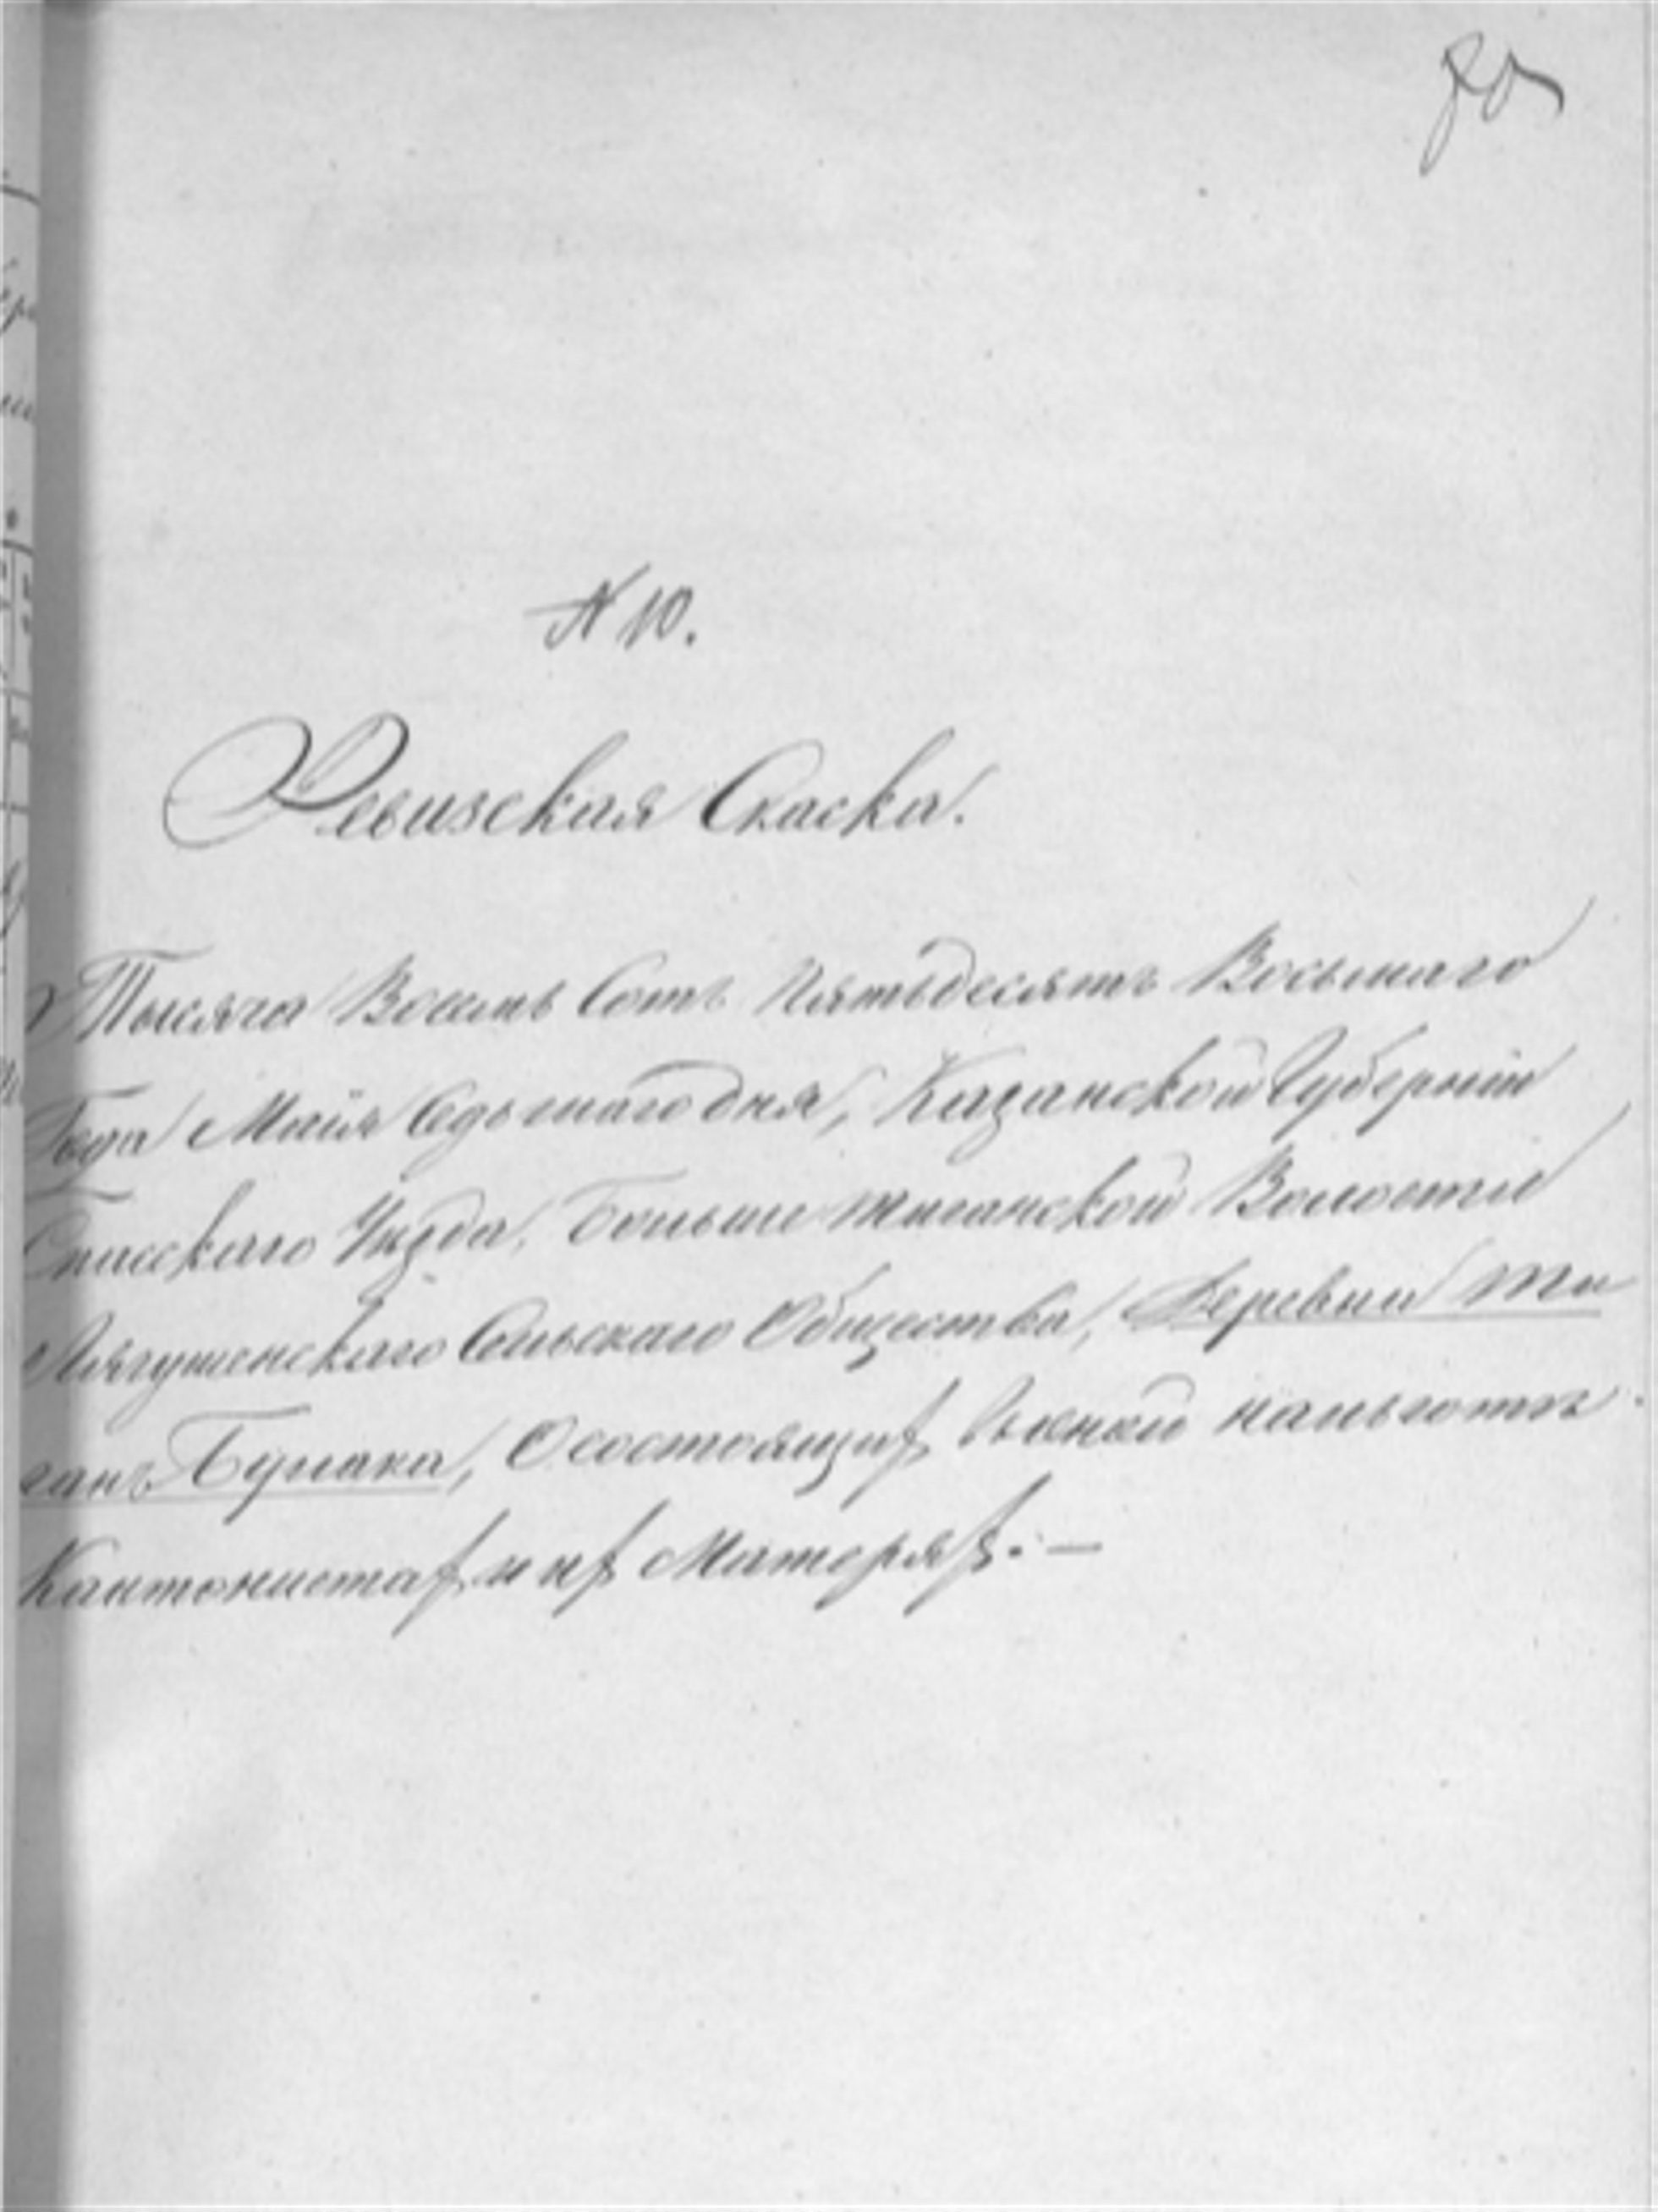 80
N 10.
Ревизская Скаска.
Тысяча Восемь Сотъ Пятьдесятъ Восьмаго
Года Маія Седьмаго дня, Казанской Губерніи
Спасскаго Уѣзда, Больше Тиганской Волости
Лягушенскаго Сельскаго Общества, Деревни Ти
ганъ Булака, О состоящихъ на льготѣ
Кантонистахъ и ихъ Матеряхъ. —